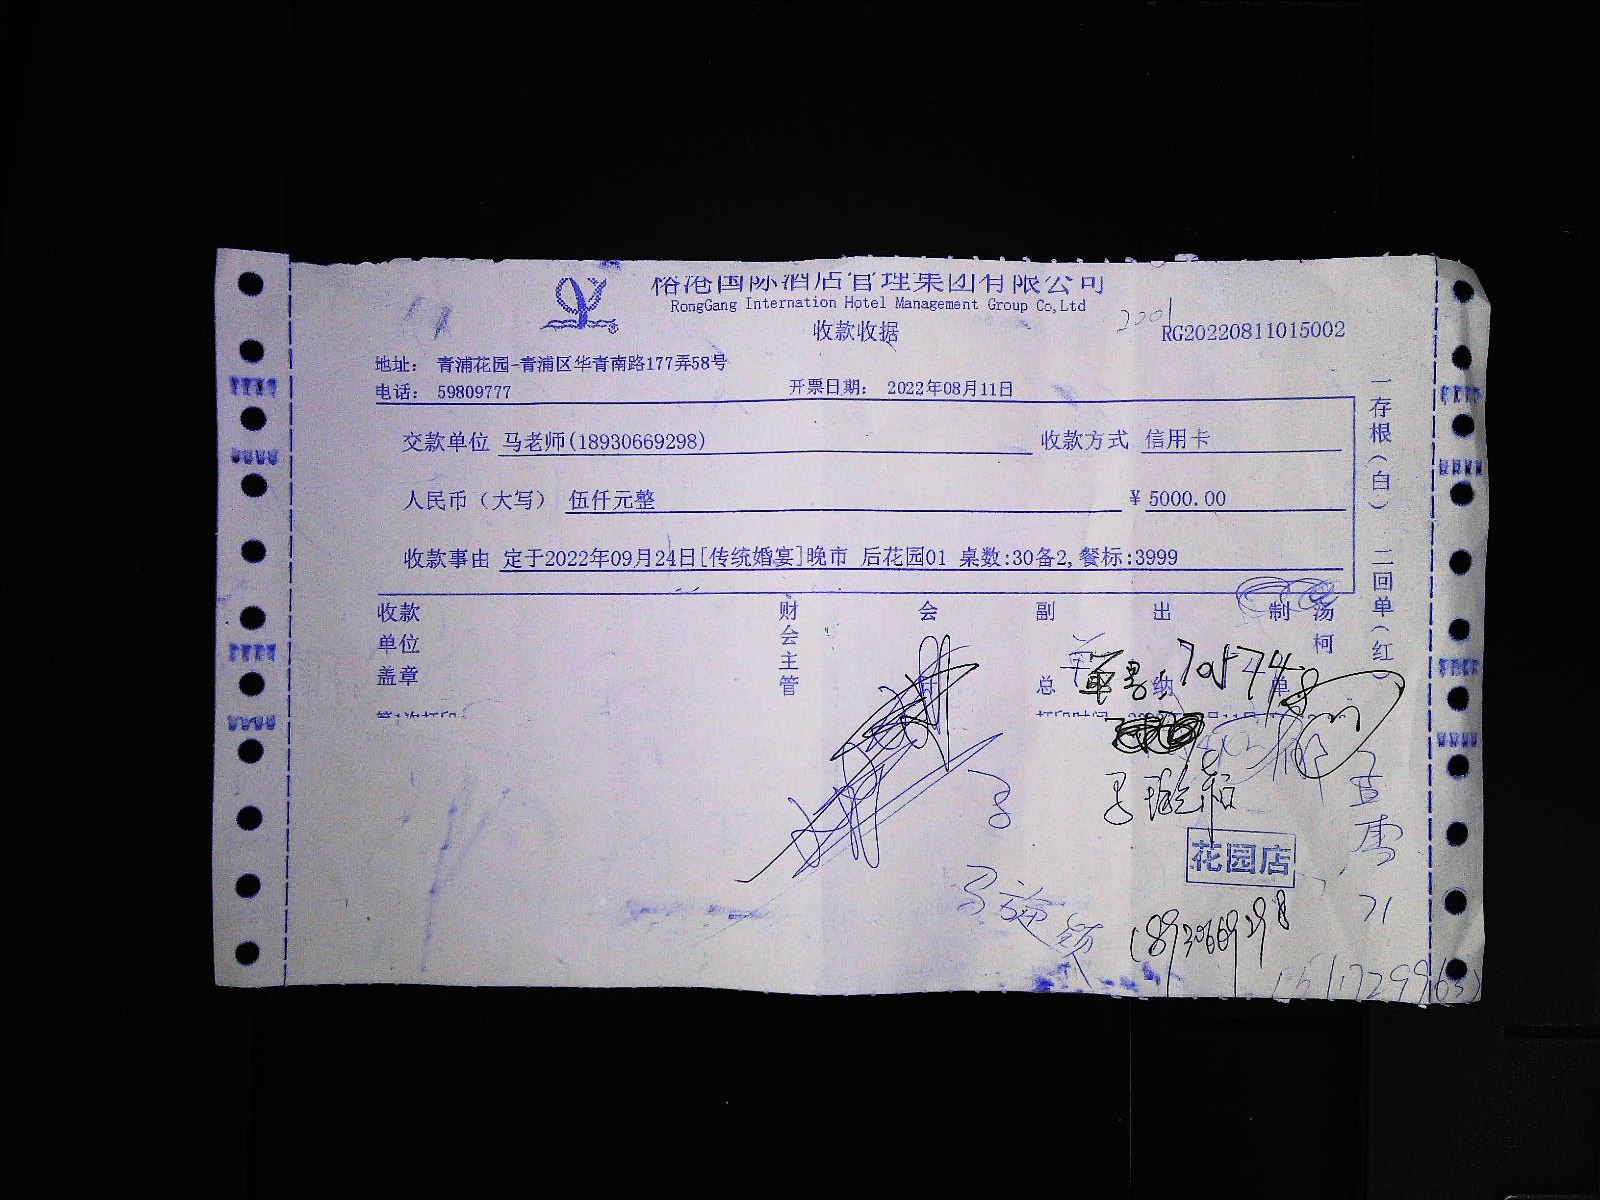 裕港国际酒店管理集团有限公司
RongGang Internation Hotel Management Group Co,Ltd
收款收据
2001
RG20220811015002
地址: 青浦花园-青浦区华青南路177弄58号
电话: 59809777
开票日期: 2022年08月11日
交款单位 马老师(18930669298)
收款方式 信用卡
人民币（大写） 伍仟元整
¥ 5000.00
收款事由 定于2022年09月24日[传统婚宴]晚市 后花园01 桌数:30备2,餐标:3999
一存根(白) 二回单(红)
收款单位盖章
财会主管
会计
副总
出纳
制单
汤柯
单号:
花园店
18930669298